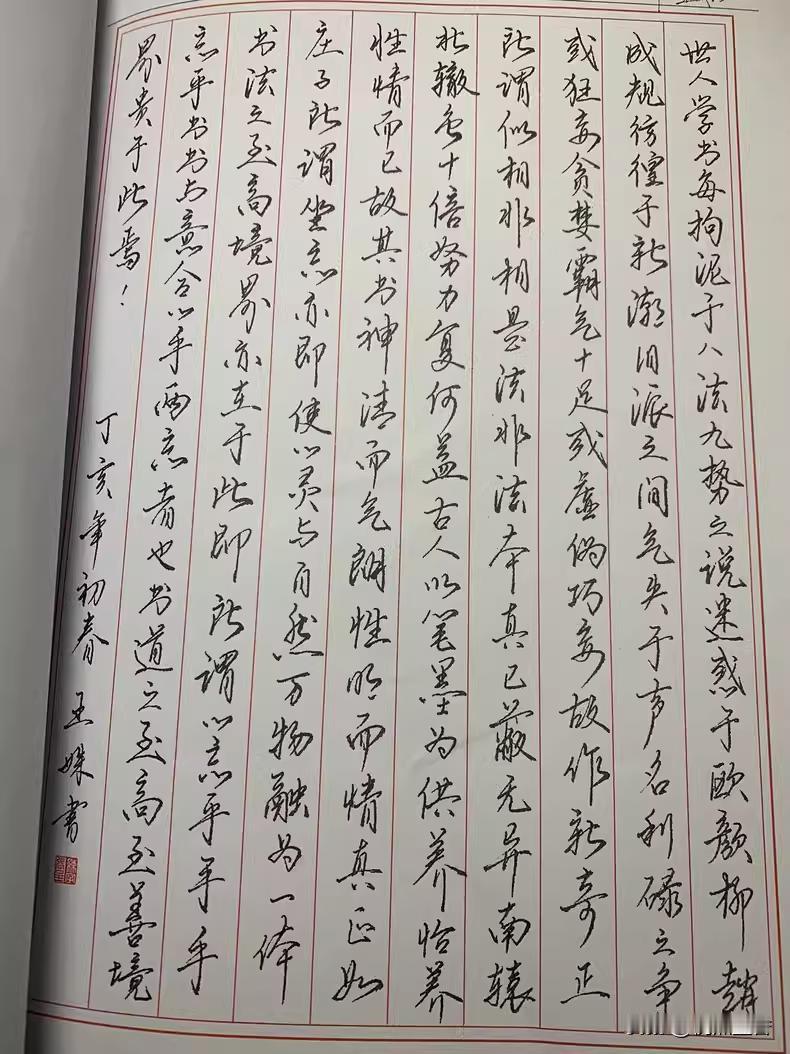 世人学书每拘泥于八法九势之说迷惑于欧颜柳赵
成规彷徨于新潮旧派之间气失于声名利碌之争
或狂妄贪婪霸气十足或虚伪巧妄故作新奇正
所谓似相非相是法非法本真已蔽无异南辕
北辙虽十倍努力复何益古人以笔墨为供养恰养
性情而已故其书神清而气朗性明而情真正如
庄子所谓坐忘亦即使心灵与自然万物融为一体
书法之至高境界亦在于此即所谓心忘乎手手
忘乎书书与意合心手两忘者也书道之至高至善境
界贵于此焉！
丁亥年初春王姝书